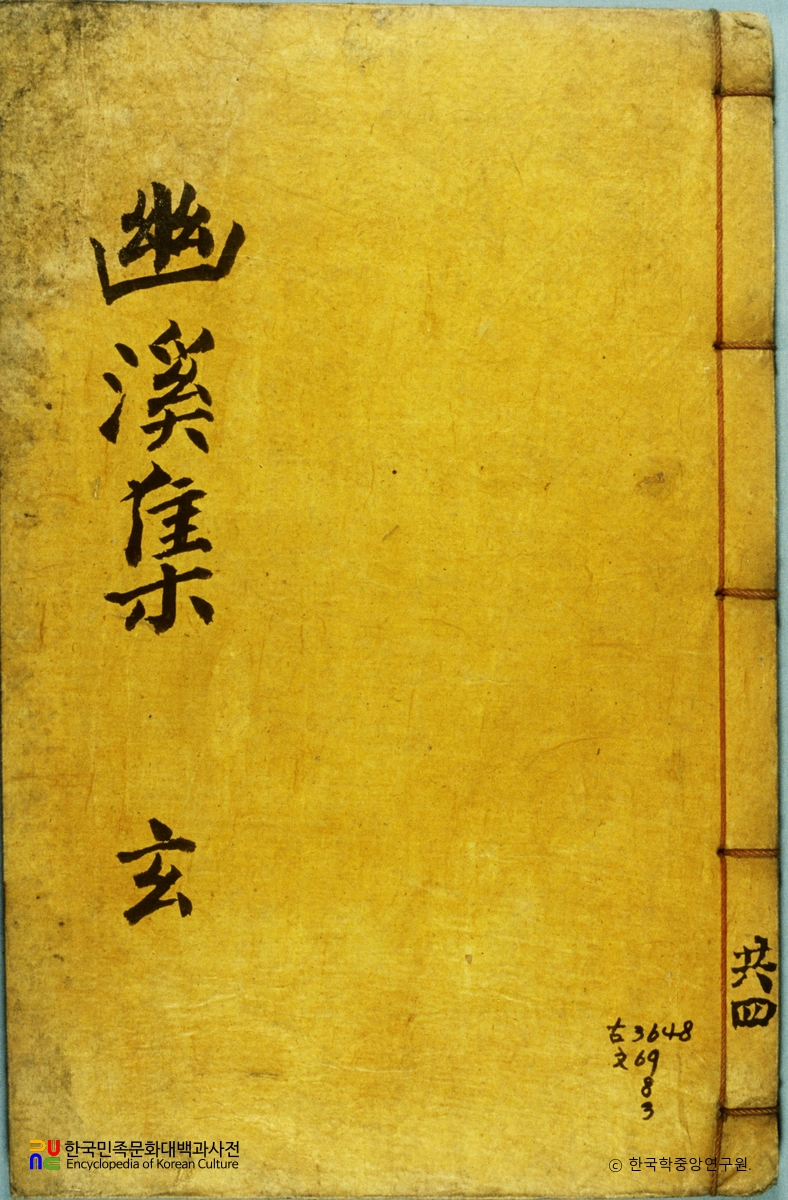 幽溪集 玄
共四
古3648
文69
8
3
한국민족문화대백과사전
Encyclopedia of Korean Culture
ⓒ 한국학중앙연구원.